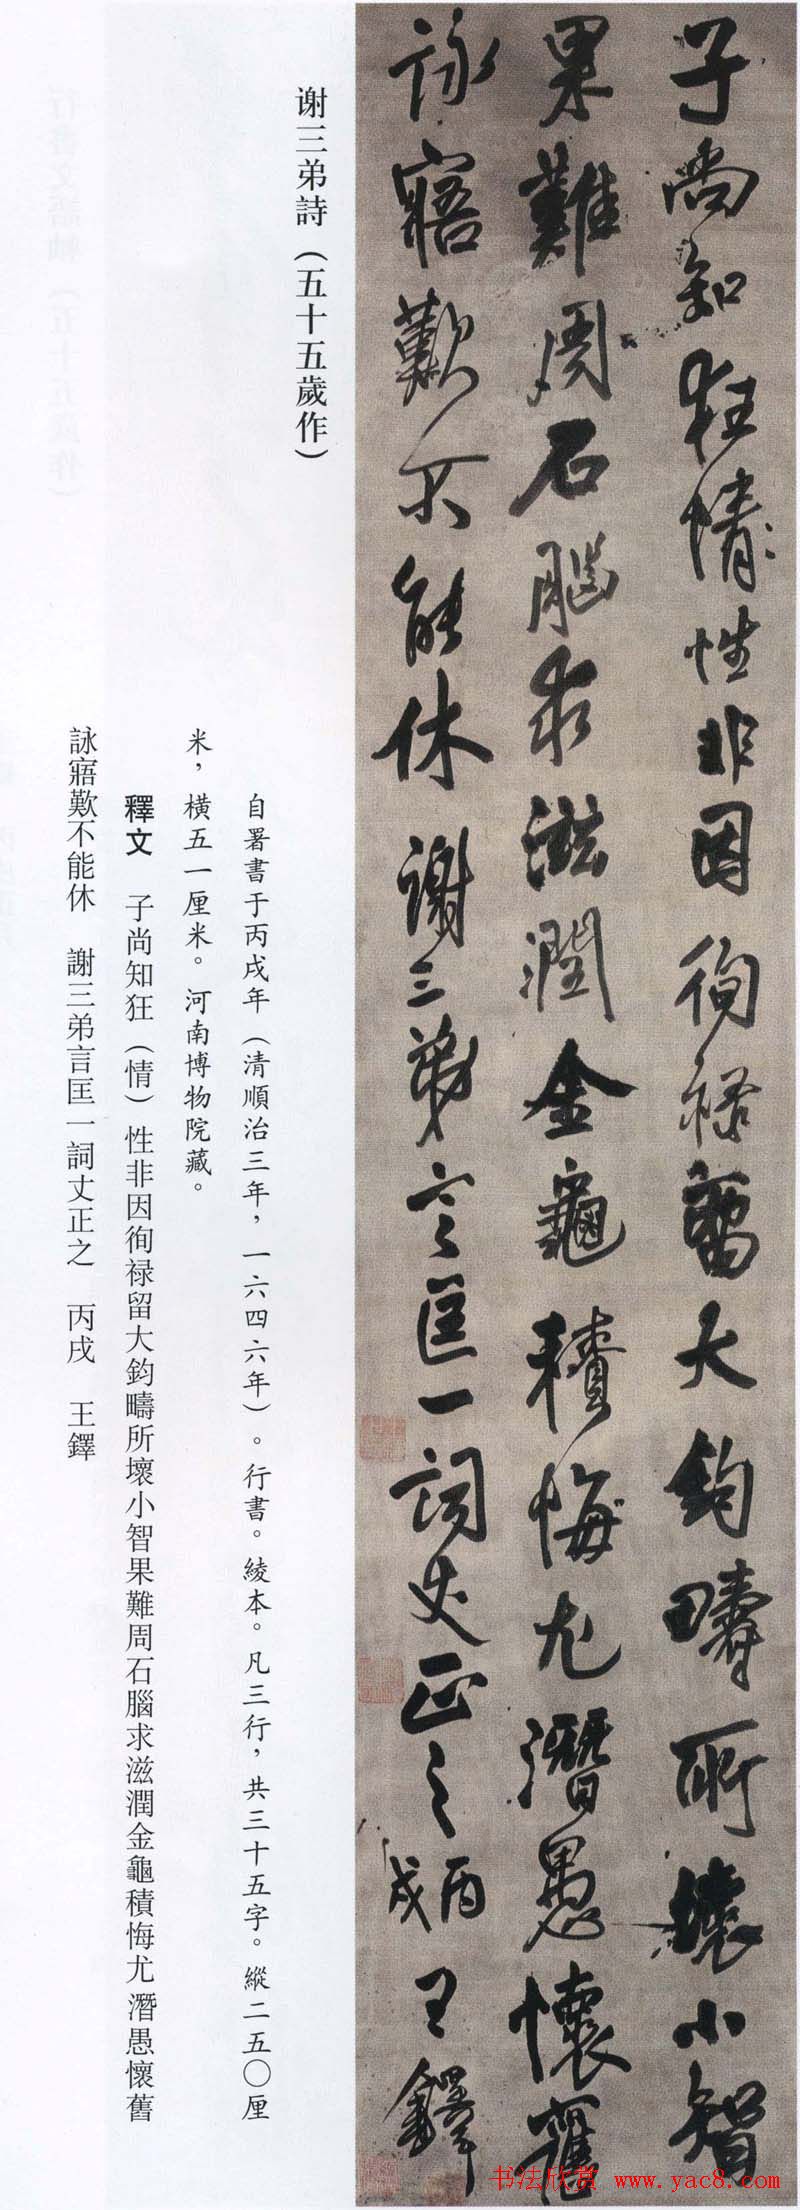 子尚知狂情性非因徇禄留大鈞疇所壞小智
果難周石腦求滋潤金龜積悔尤潛愚懷舊
詠寤歎不能休 謝三弟言匡一詞丈正之 丙戌 王鐸
谢三弟詩（五十五歲作）
自署書于丙戌年（清順治三年，一六四六年）。行書。綾本。凡三行，共三十五字。縱二五〇厘
米，橫五一厘米。河南博物院藏。
釋文 子尚知狂（情）性非因徇禄留大鈞疇所壞小智果難周石腦求滋潤金龜積悔尤潛愚懷舊
詠寤歎不能休 謝三弟言匡一詞丈正之 丙戌 王鐸
书法欣赏 www.yac8.com